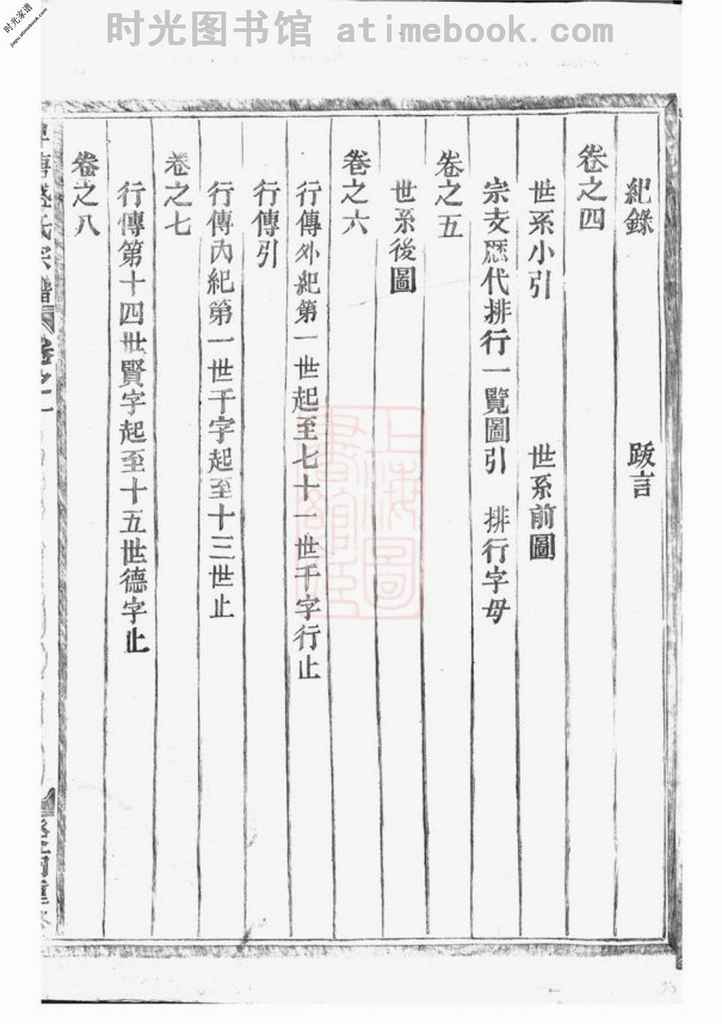 时光图书馆 atimebook.com
时光家谱
jiapu.atimebook.com
紀錄 跋言
卷之四
世系小引 世系前圖
宗支歷代排行一覽圖引 排行字母
卷之五
世系後圖
卷之六
行傳外紀第一世起至七十一世千字行止
行傳引
行傳內紀第一世千字起至十三世止
卷之七
行傳第十四世賢字起至十五世德字止
卷之八
氏宗譜 卷之一
上海圖書館藏